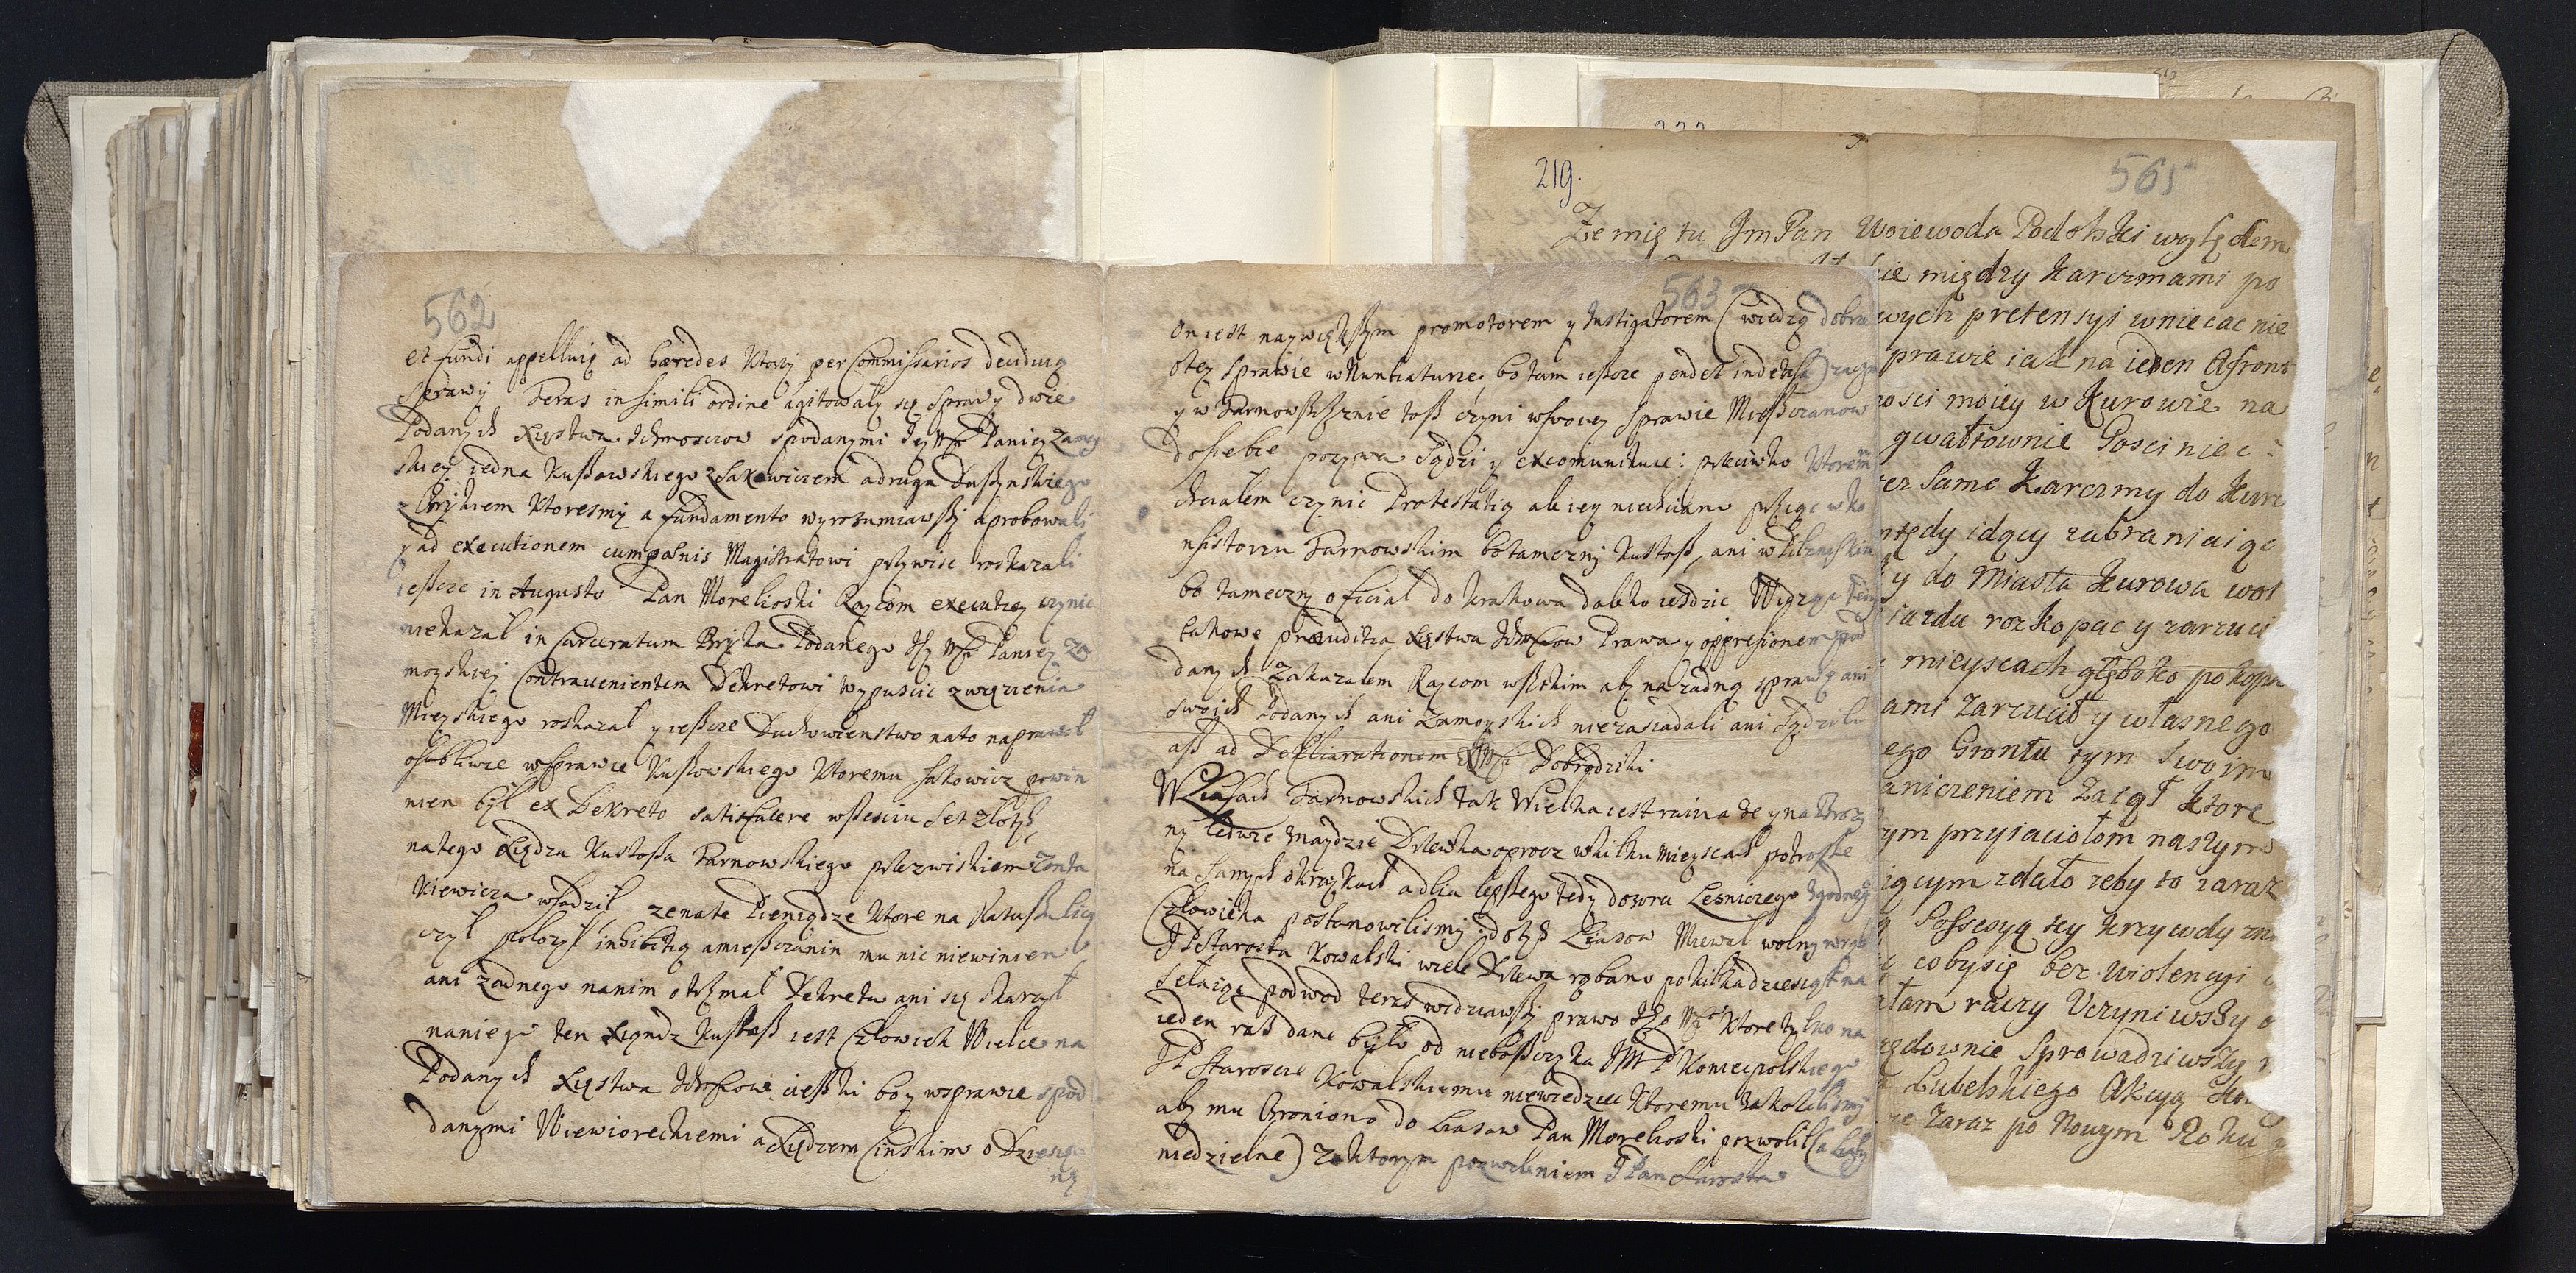 562
et fundi appelluią ad hæredes ktorzy per Commissarios deciduią
sprawy Teras in simili ordine agitowały się sprawy dwie
Podanych Xięstwa Ichmosciow spodanymi Jey Mći Paniey Zamoy
skiey iedna Kussowskiego z Sakowiczem a druga Duszynskiego
z Brykiem ktoresmy a fundamento wyrozumiawszy aprobowali
y ad executionem cum pænis Magistratowi przywiść roskazali
ieszcze in Augusto Pan Morelioski Raycom executiey czynic
niekazał in carceratum Bryka Podanego Jey Mći Paniey Za
moyskiey contravenientem Dekretowi wypuscic zwięzienia
Mieyskiego roskazał y ieszcze Duchowienstwo nato naprawił
osobliwie wsprawie Kusowskiego ktoremu Sakowicz powin
nien był ex Dekreto satisfacere wszesciu set złotych
natego Xiędza Kustosza Tarnowskiego przezwiskiem Zonta
kiewicza wsadził zenate Pieniądze ktore na Ratuszu licz
czył położył inhibitią amieszczanin mu nic niewinien
ani zadnego nanim otrzmał Dekretu ani się skarzył
naniego ten Xiąndz Kustosz iest Człowiek Wielce na
Podanych Xięstwa Ichmciow cieszki bo y wsprawie spod
danymi Wiewioreckiemi a Xiędzem Cinskim o Dziesięci
ny
563
On iest naywiększym promotorem y Instigatorem (wiedzą dobrze
otey sprawie wNuntiaturze, bo tam ieszcze pendet indecisa) zaczym
y w Tarnowszczyznie tosz czyni wswoiey sprawie Mieszczanow
do siebie pozywa sądzi y excomunikuie: przeciwko ktorem
chciałem czynic Protestatią ale iey niechciano przyiąc w ko
nsistorzu Tarnowskim bo tameczny Kustosz, ani w Pilznenskim
bo tameczny oficiał do Krakowa daleko iezdzic Widząc tedy
takowe præiuditia Xięstwa Ichmciow Prawa y oppresionem pod
danych zakazałem Raycom wszitkim aby na zadną sprawę ani
swoich Podanych ani Zamoyskich niezasiadali ani sądzili
asz ad Declarationem Mći Dobrodziki
WLasach Tarnowskich tak Wielka iest ruina ze y na Brozy
ny ledwie znaydzie Drzewka oprocz wkilku mieyscach potrosze
na samych okrązkach adla lepszego tedy dozoru Lesniczego zgodnego
Człowieka postanowilismy: dotych Liasow Miewał wolny wrąb
JP Starosta Kowalski wiele Drzewa rąbano po kilkadziesiąt na
setnicę podwod teras widziawszy prawo Iego Mći ktore tylko na
ieden rasz dane było od nieboszczyka JM P Koniecpolskiego
JP Staroscie Kowalskiemu niewiedziec ktoremu zakazalismy
aby mu broniono do Liasow Pan Morelioski pozwolił (a było
niedzielne) zaktorym pozwoleniem JPan Starosta
219.
565
Ze mię tu Jm Pan Woiewoda Podolski względem
ie między Karczmami po
wych pretensyi wniecac nie
prawie iak na ieden Afront
nosci moiey w Kurowie na
gwałtownie Posciniec
ez same Karczmy do Kuro
ntędy idący zabraniaiąc
y do Miasta Kurowa wol
iazdu rozkopac y zarzuci
mieyscach głęboko pokopa
ami Zarzucił y własnego
ego Grontu tym Swoim
aniczeniem zaiął ktore
ym przyiaciołom naszym
iącym zdało zeby to zaraz
Possesyą tey krzywdy zno
cobysię bez wiolencyi
atam raczy Uczyniwszy
ządownie Sprowadziwszy
Lubelskiego Akcyą
ze Zaraz po Nowym Roku